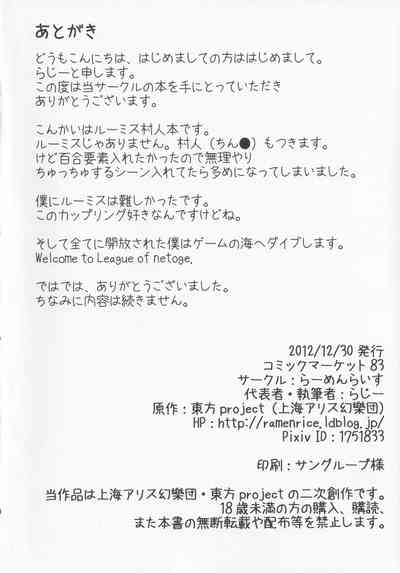 あとがき
どうもこんにちは、はじめましての方ははじめまして。
らじーと申します。
この度は当サークルの本を手にとっていただき
ありがとうございます。
こんかいはルーミス村人本です。
ルーミスじゃありません。村人（ちん●）もつきます。
けど百合要素入れたかったので無理やり
ちゅっちゅするシーン入れてたら多めになってしまいました。
僕にルーミスは難しかったです。
このカップリング好きなんですけどね。
そして全てに開放された僕はゲームの海へダイブします。
Welcome to League of netoge.
ではでは、ありがとうございました。
ちなみに内容は続きません。
2012/12/30 発行
コミックマーケット 83
サークル：らーめんらいす
代表者・執筆者：らじー
原作：東方project（上海アリス幻樂団）
HP：http://ramenrice.ldblog.jp/
Pixiv ID：1751833
印刷：サングループ様
当作品は上海アリス幻樂団・東方projectの二次創作です。
18歳未満の方の購入、購読、
また本書の無断転載や配布等を禁止します。